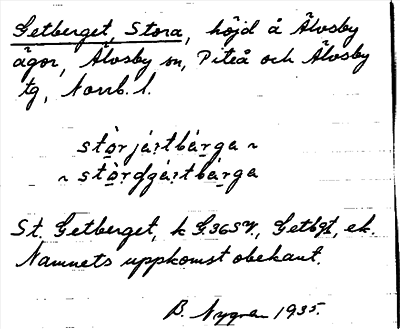 Getberget, Stora, höjd å Älvsby
ägor, Älvsby sn, Piteå och Älvsby
tg, Norrb. l.
stòrjá:tbárga ~
~ stòrdgá:tbárga
St. Getberget, k G.36SV, Getbgt, ek.
Namnets uppkomst obekant.
B. Nygren 1935.